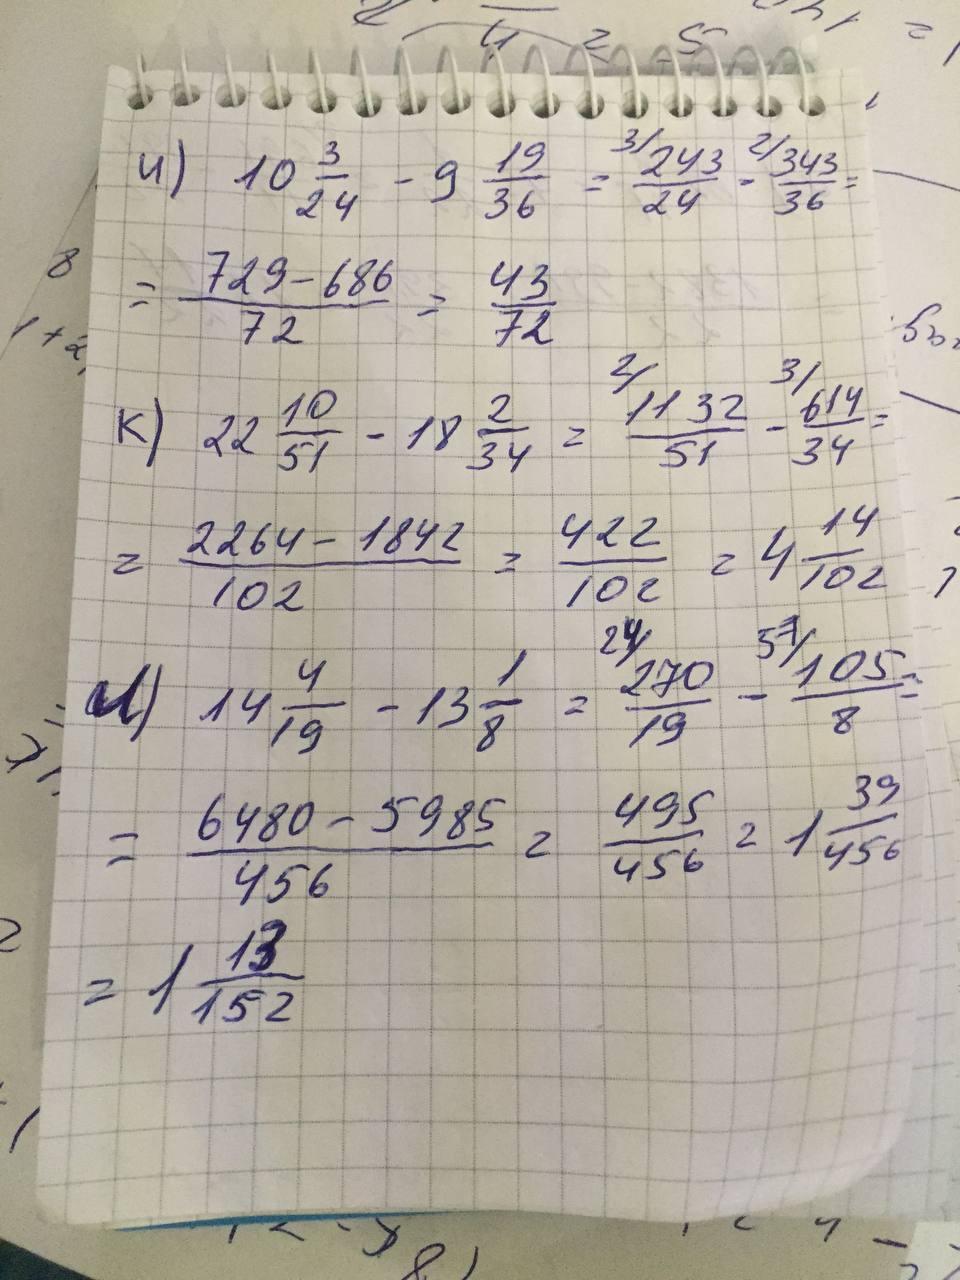 и) 10 3/24 - 9 19/36 = 3/ 243/24 - 2/ 343/36 =
= (729 - 686)/72 = 43/72
к) 22 10/51 - 18 2/34 = 2/ 1132/51 - 3/ 614/34 =
= (2264 - 1842)/102 = 422/102 = 4 14/102
л) 14 4/19 - 13 1/8 = 24/ 270/19 - 57/ 105/8 =
= (6480 - 5985)/456 = 495/456 = 1 39/456
= 1 13/152